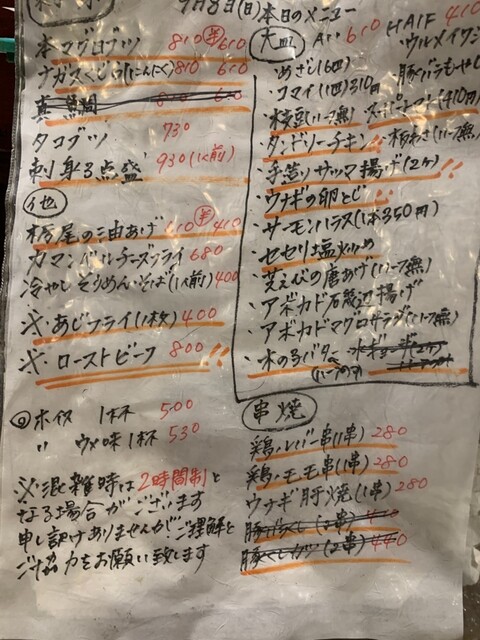 9月8日(日)本日のメニュー
本マグロブツ 810 半 610
ナガスくじら(にんにく) 810 610
真鯛 810 610
タコブツ 730
刺身3点盛 930(1人前)
他
栃尾の油あげ 610 半 410
カマンベールチーズフライ 680
冷やしそうめん・そば(1人前) 400
※・あじフライ(1枚) 400
※・ローストビーフ 800
◎ホイス 1杯 500
〃 ウメ味1杯 530
※混雑時は2時間制と
なる場合がございます
申し訳ありませんがご理解と
ご協力をお願い致します
大皿 All 610 HALF 410
・ウルメイワシ
・めざし(4匹)
・豚バラもやし
・コマイ(4匹)310円
・枝豆(ハーフ無)
・スーパートマト(410円)
・タンドリーチキン
・板わさ(ハーフ無)
・手造りサツマ揚げ(2ヶ)
・ウナギの卵とじ
・サーモンハラス(1本350円)
・セセリ塩炒め
・芝えびの唐あげ(ハーフ無)
・アボカド石蔵辺揚げ
・アボカドマグロサラダ(ハーフ無)
・木の子バター
(ハーフのみ)
・水ギョーザ(2ヶ)
串焼
鶏・レバー串(1串) 280
鶏・モモ串(1串) 280
ウナギ肝焼(1串) 280
(2串) 440
豚くしカツ(2串) 440